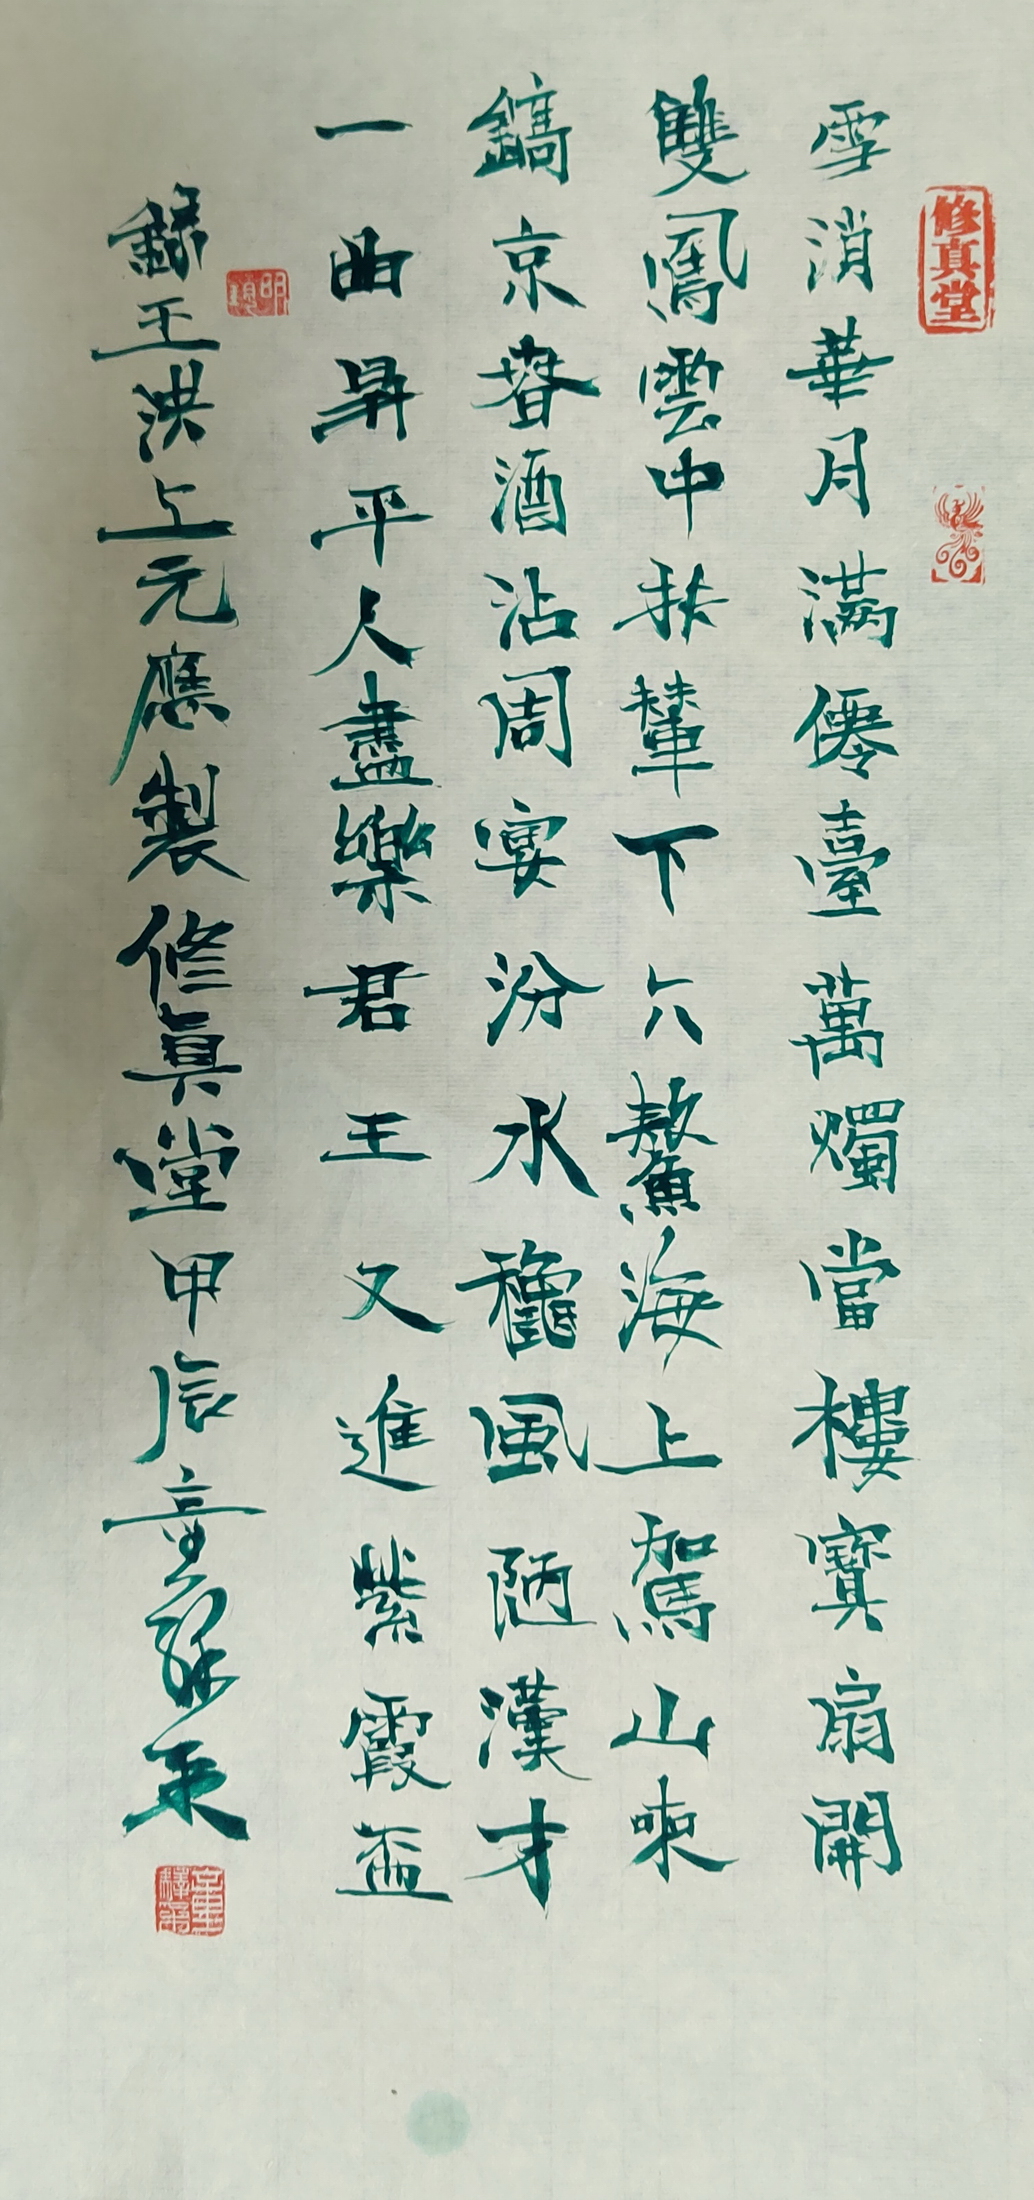 修真堂
雪消華月滿僊臺萬燭當樓寶扇開
雙鳳雲中扶輦下六鰲海上駕山來
鎬京春酒沾周宴汾水龝風陋漢才
一曲昇平人盡樂君王又進紫霞盃
錄王洪上元應製修真堂甲辰章